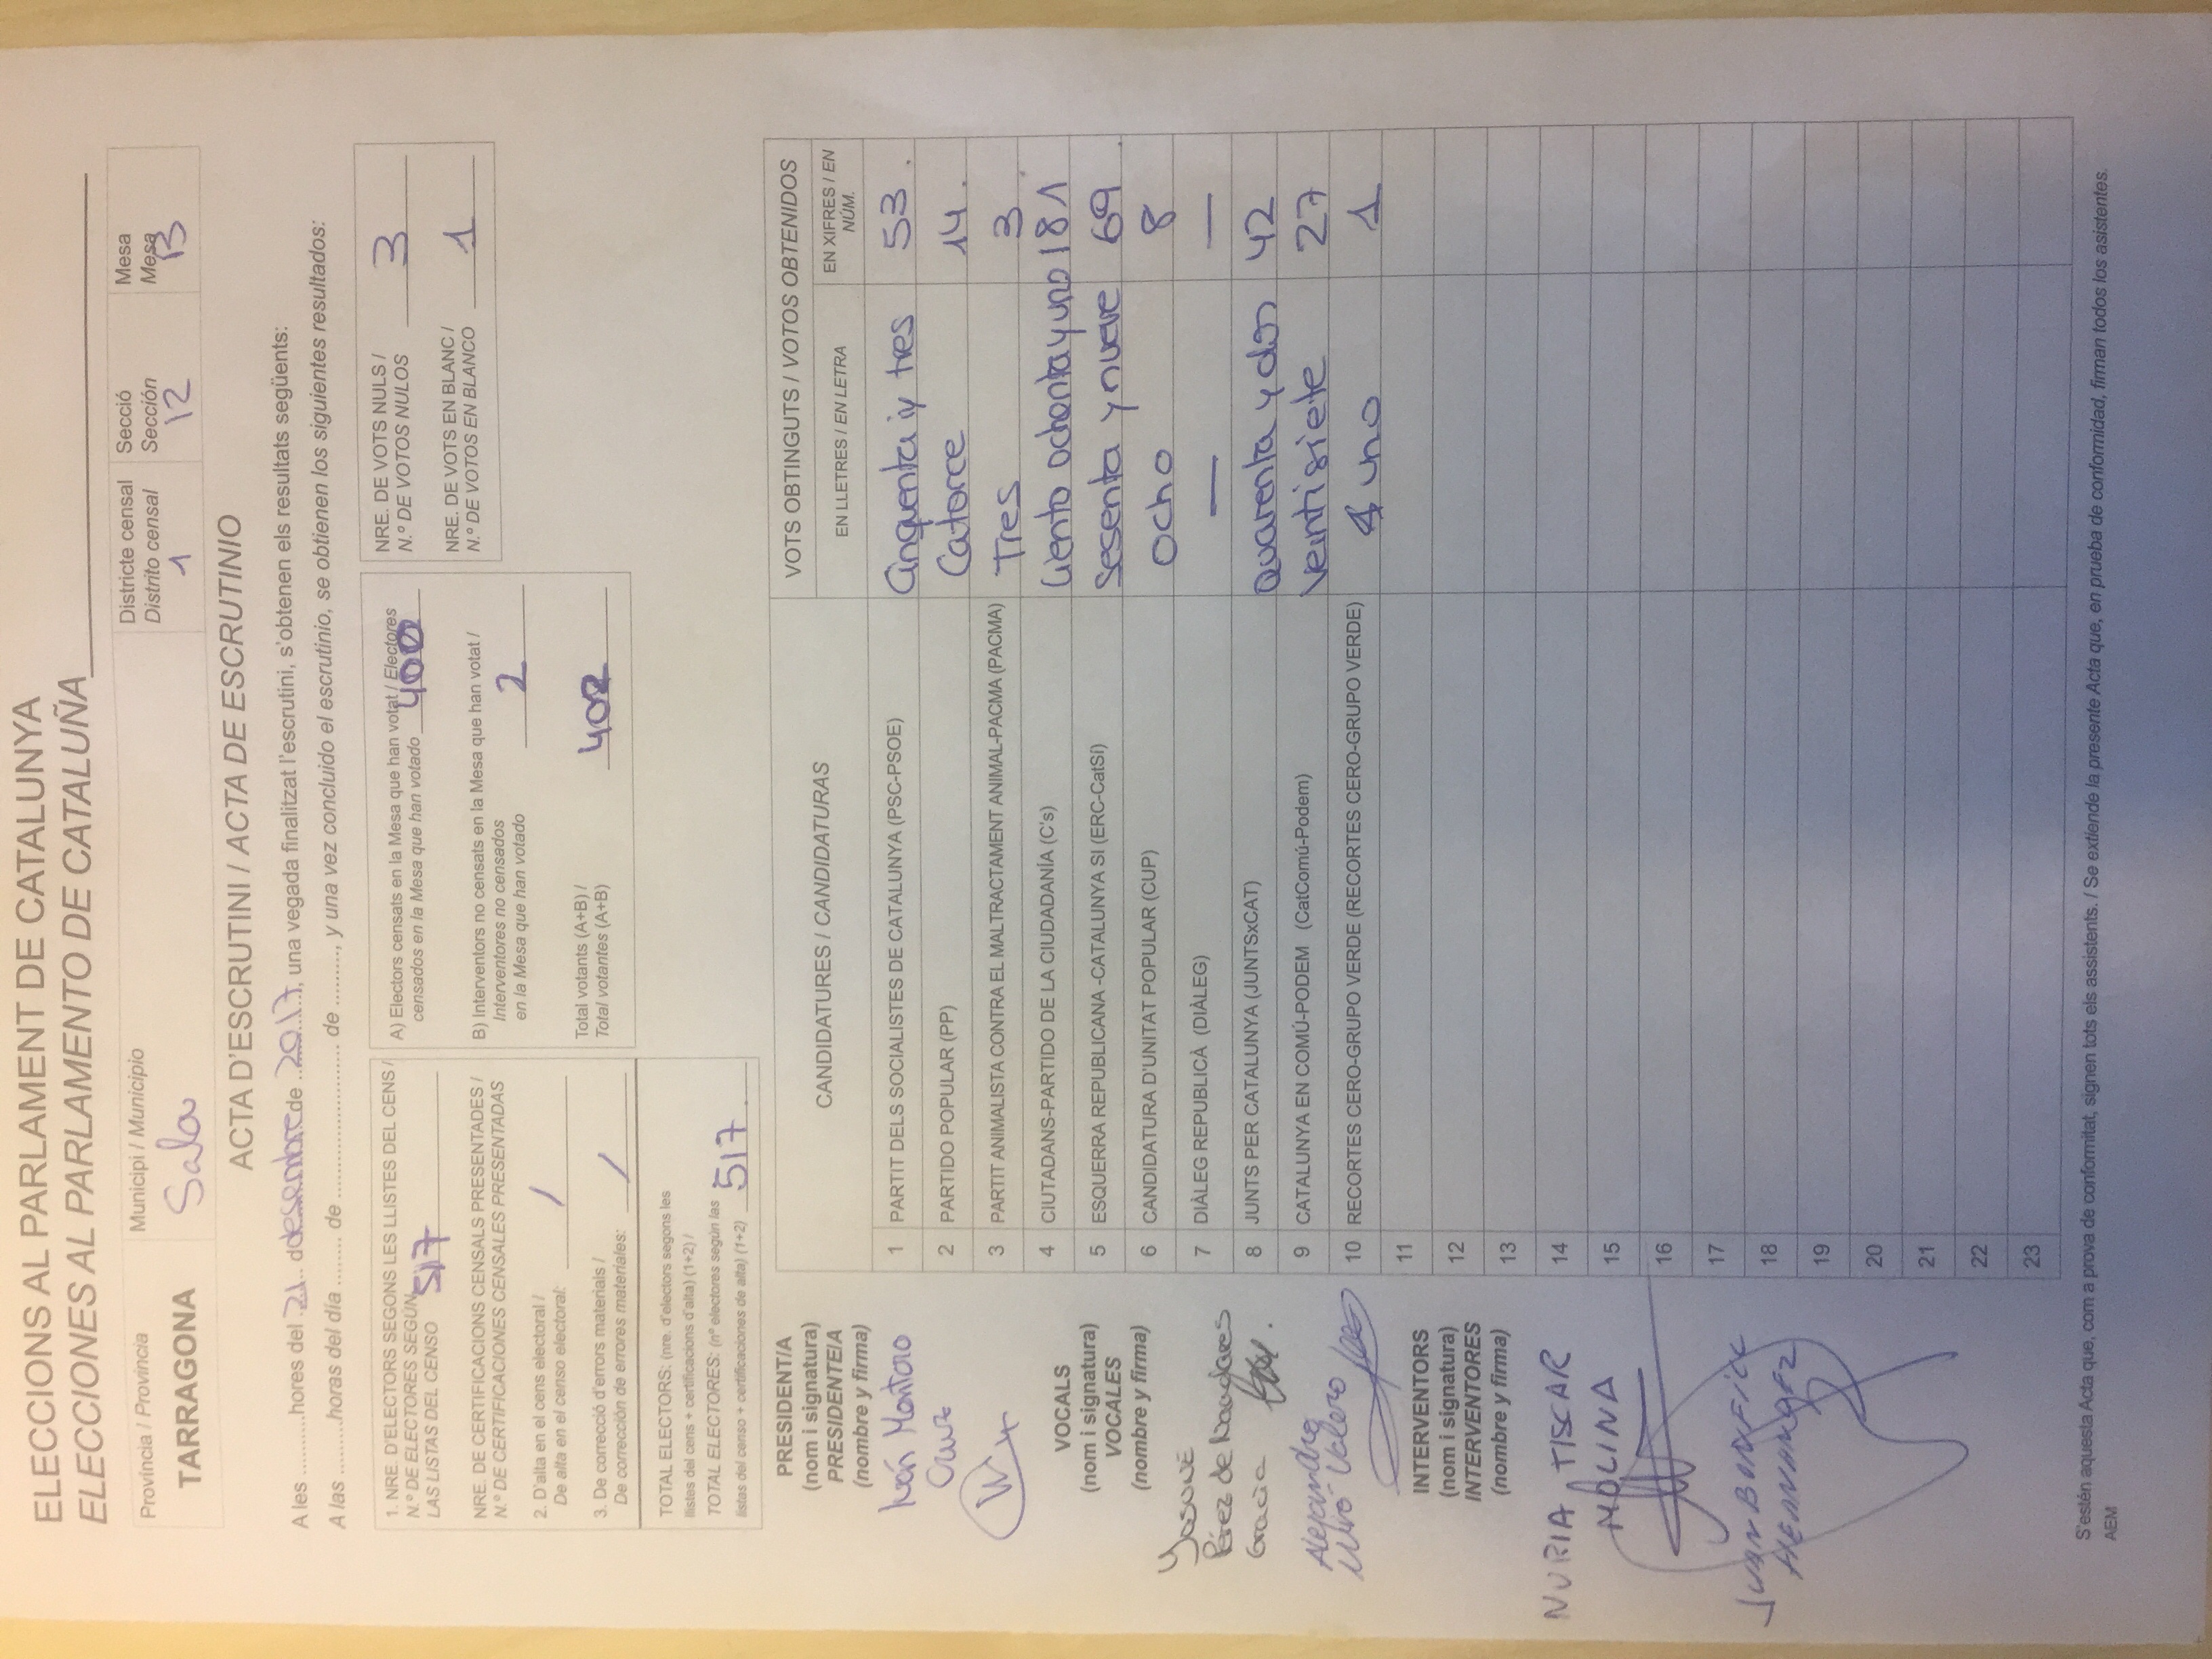 ELECCIONS AL PARLAMENT DE CATALUNYA
ELECCIONES AL PARLAMENTO DE CATALUÑA
Província / Provincia
TARRAGONA
Municipi / Municipio
Salou
Districte censal
Distrito censal
1
Secció
Sección
12
Mesa
Mesa
B
ACTA D'ESCRUTINI / ACTA DE ESCRUTINIO
A les .........hores del 21 d desembre de 2017, una vegada finalitzat l'escrutini, s'obtenen els resultats següents:
A las .........horas del día ........ de ............................ de ........., y una vez concluido el escrutinio, se obtienen los siguientes resultados:
1. NRE. D'ELECTORS SEGONS LES LLISTES DEL CENS /
N.º DE ELECTORES SEGÚN
LAS LISTAS DEL CENSO 517
NRE. DE CERTIFICACIONS CENSALS PRESENTADES /
N.º DE CERTIFICACIONES CENSALES PRESENTADAS
2. D'alta en el cens electoral /
De alta en el censo electoral: /
3. De correcció d'errors materials /
De corrección de errores materiales: /
TOTAL ELECTORS: (nre. d'electors segons les
llistes del cens + certificacions d'alta) (1+2) /
TOTAL ELECTORES: (nº electores según las
listas del censo + certificaciones de alta) (1+2) 517
A) Electors censats en la Mesa que han votat / Electores
censados en la Mesa que han votado 400
B) Interventors no censats en la Mesa que han votat /
Interventores no censados
en la Mesa que han votado 2
Total votants (A+B) /
Total votantes (A+B) 402
NRE. DE VOTS NULS /
N.º DE VOTOS NULOS 3
NRE. DE VOTS EN BLANC /
N.º DE VOTOS EN BLANCO 1
PRESIDENT/A
(nom i signatura)
PRESIDENTE/A
(nombre y firma)
Iván Montoro
Cruz
VOCALS
(nom i signatura)
VOCALES
(nombre y firma)
Yosune
Pérez de
Gracia
Alejandro
Miró Valero
INTERVENTORS
(nom i signatura)
INTERVENTORES
(nombre y firma)
NURIA TISCAR
MOLINA
JUAN BONFILL
HERNANDEZ
CANDIDATURES / CANDIDATURAS
VOTS OBTINGUTS / VOTOS OBTENIDOS
EN LLETRES / EN LETRA
EN XIFRES / EN
NÚM.
1 PARTIT DELS SOCIALISTES DE CATALUNYA (PSC-PSOE) Cinquenta y tres 53.
2 PARTIDO POPULAR (PP) Catorce 14.
3 PARTIT ANIMALISTA CONTRA EL MALTRACTAMENT ANIMAL-PACMA (PACMA) Tres 3
4 CIUTADANS-PARTIDO DE LA CIUDADANÍA (C's) Ciento ochenta y uno 181
5 ESQUERRA REPUBLICANA -CATALUNYA SI (ERC-CatSí) Sesenta y nueve 69
6 CANDIDATURA D'UNITAT POPULAR (CUP) Ocho 8
7 DIÀLEG REPUBLICÀ (DIÀLEG) — —
8 JUNTS PER CATALUNYA (JUNTSxCAT) Quarenta y dos 42
9 CATALUNYA EN COMÚ-PODEM (CatComú-Podem) Veintisiete 27
10 RECORTES CERO-GRUPO VERDE (RECORTES CERO-GRUPO VERDE) uno 1
11
12
13
14
15
16
17
18
19
20
21
22
23
S'estén aquesta Acta que, com a prova de conformitat, signen tots els assistents. / Se extiende la presente Acta que, en prueba de conformidad, firman todos los asistentes.
AEM